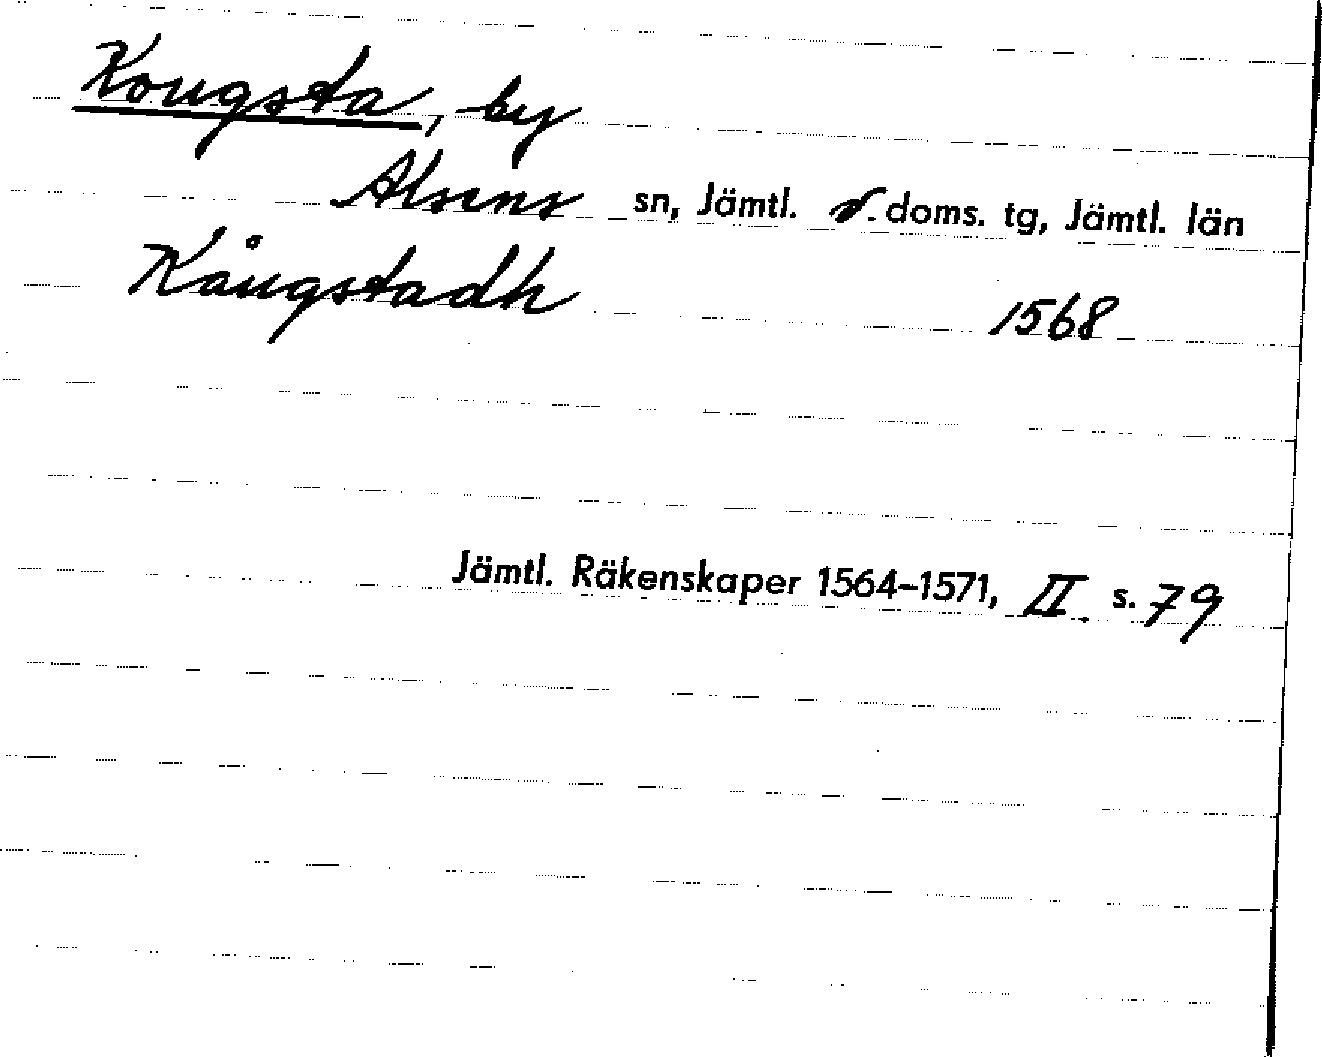 Kougsta, by
Alsens sn, Jämtl. v. doms. tg, Jämtl. län
Kåugstadh 1568
Jämtl. Räkenskaper 1564–1571, II s. 79